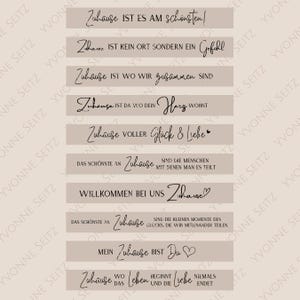 Zuhause IST ES AM schönsten!
Zuhause IST KEIN ORT SONDERN EIN Gefühl
Zuhause IST WO WIR zusammen SIND
Zuhause IST DA WO DEIN Herz WOHNT
Zuhause VOLLER Glück & Liebe
DAS SCHÖNSTE AN Zuhause SIND DIE MENSCHEN
MIT DENEN MAN ES TEILT
WILLKOMMEN BEI UNS Zuhause
DAS SCHÖNSTE AN Zuhause SIND DIE KLEINEN MOMENTE DES
GLÜCKS, DIE WIR MITEINANDER TEILEN
MEIN Zuhause BIST Du
Zuhause WO DAS Leben BEGINNT UND DIE Liebe NIEMALS ENDET
YVONNE SEITZ